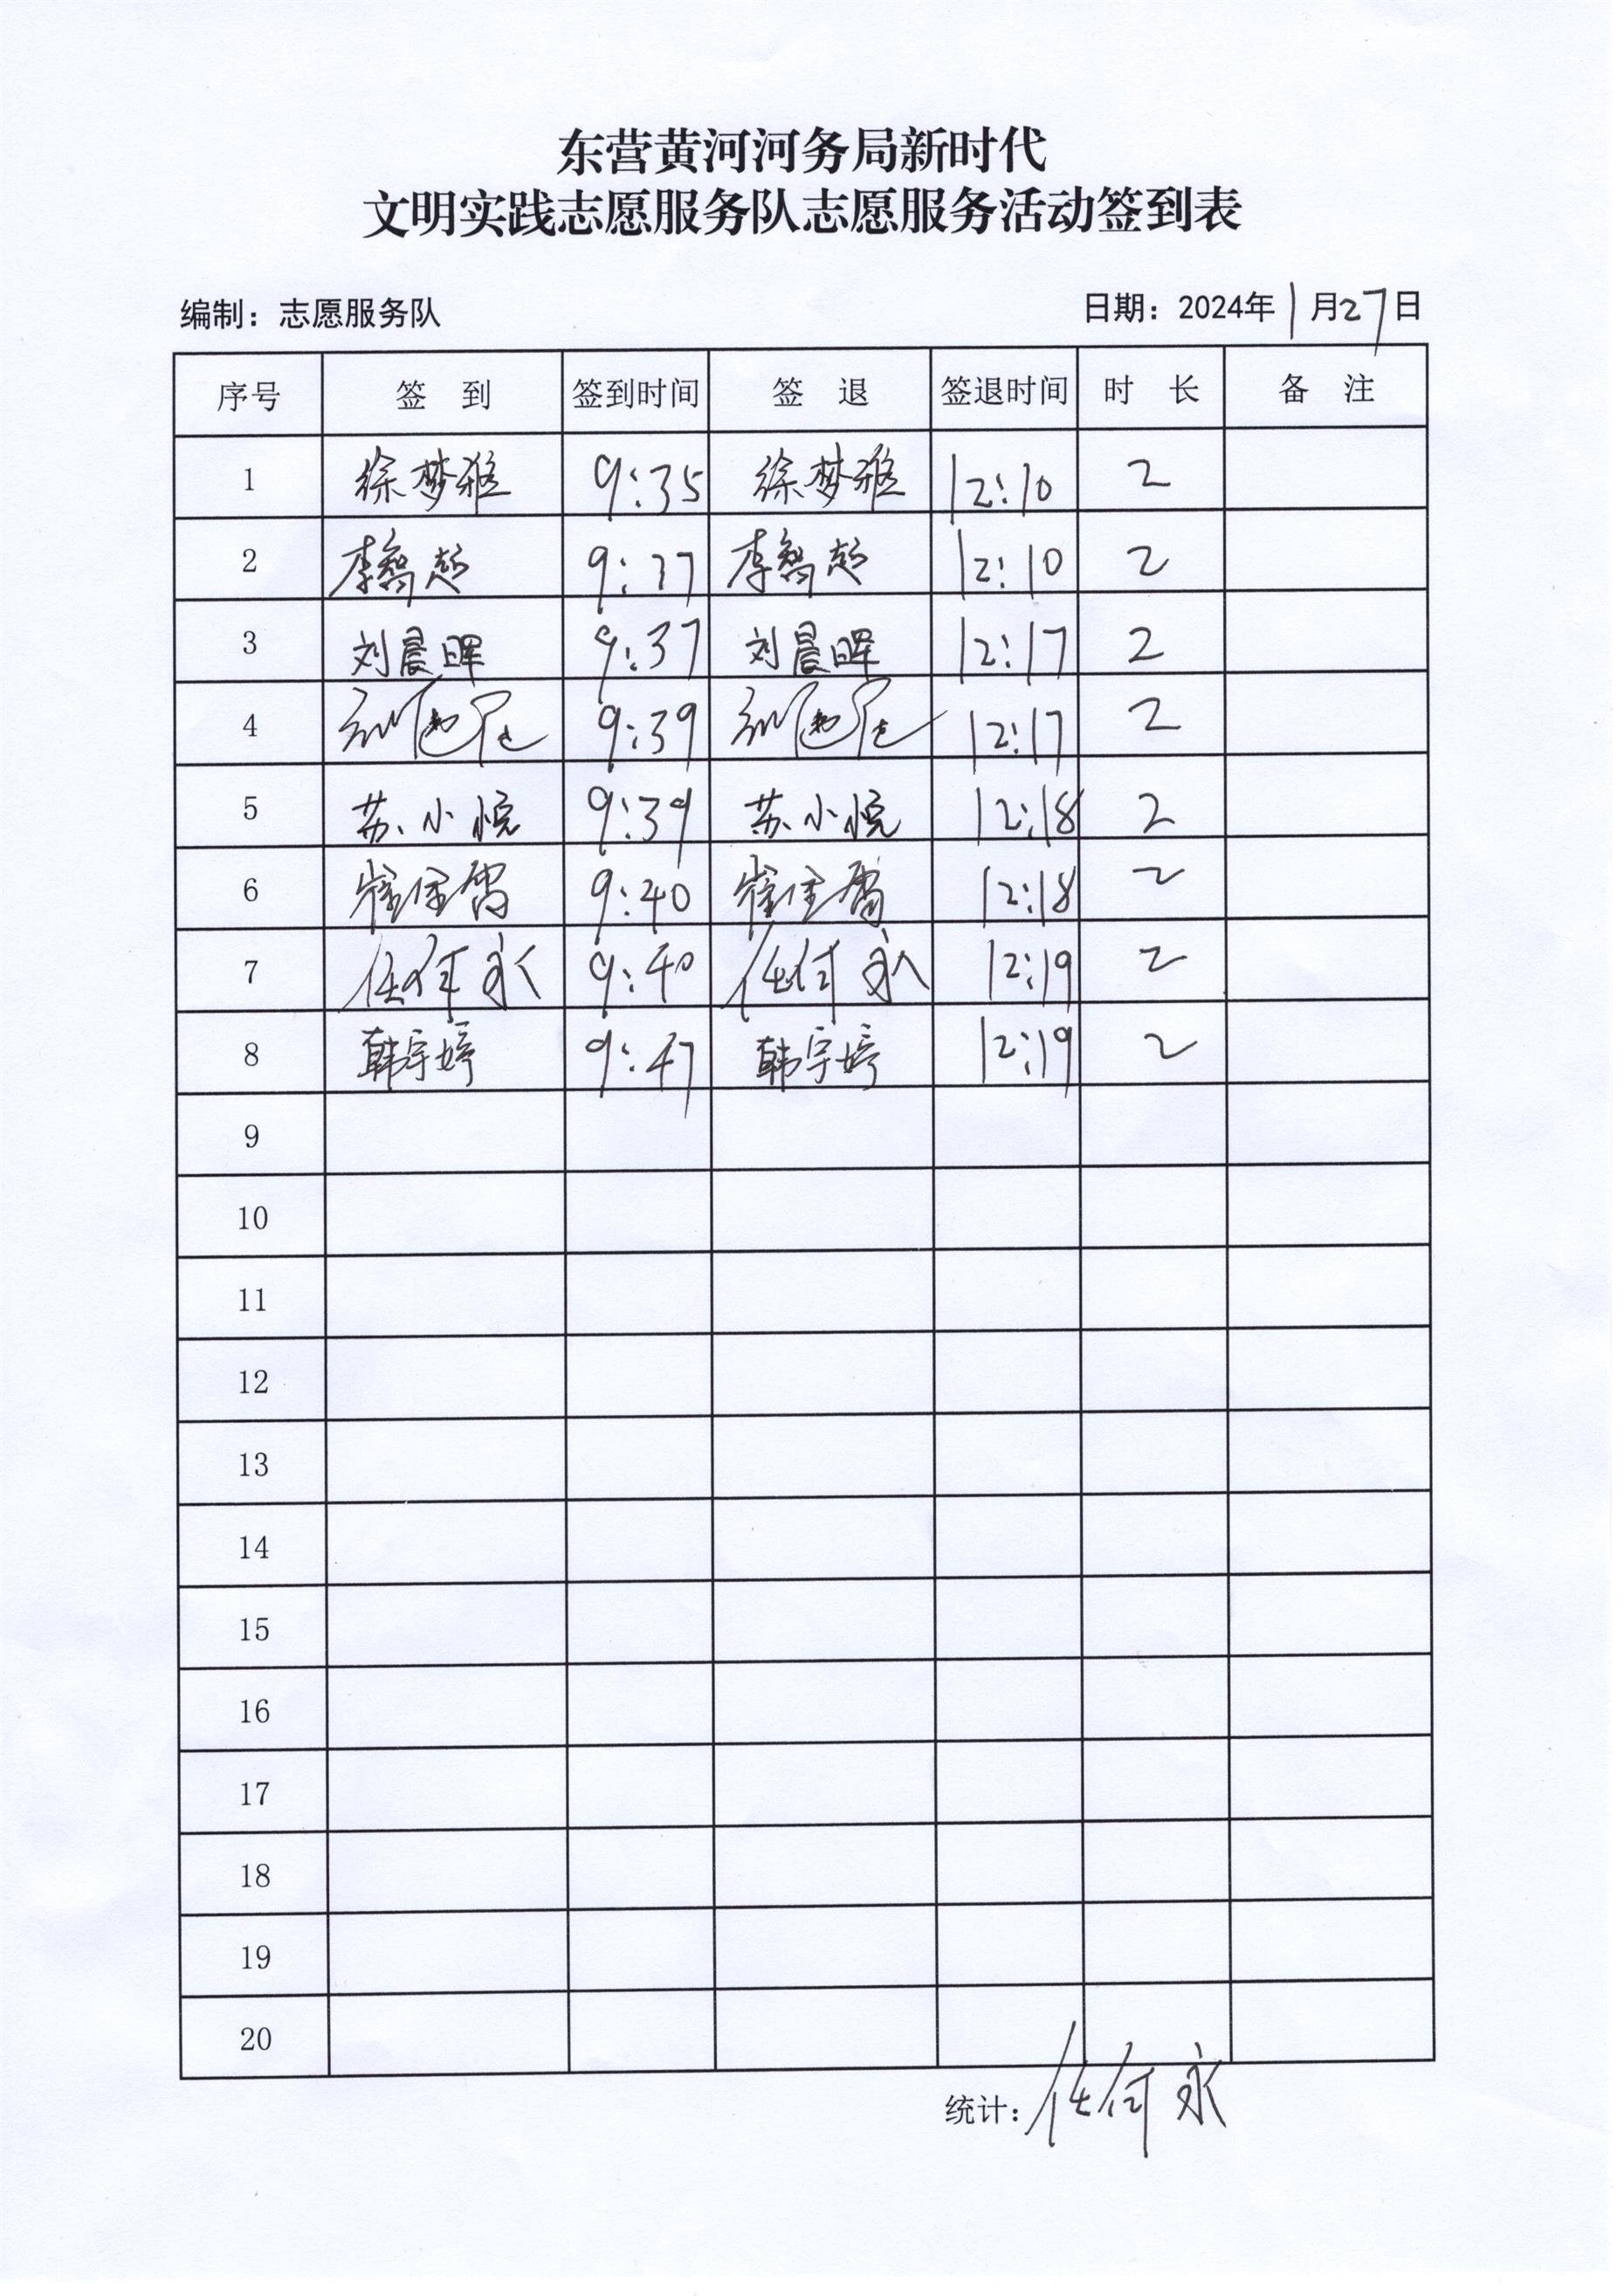 东营黄河河务局新时代
文明实践志愿服务队志愿服务活动签到表
编制：志愿服务队 日期：2024年1月27日
序号 签 到 签到时间 签 退 签退时间 时 长 备 注
1 徐梦雅 9:35 徐梦雅 12:10 2
2 李智超 9:37 李智超 12:10 2
3 刘晨晖 9:37 刘晨晖 12:17 2
4 9:39 12:17 2
5 苏小悦 9:39 苏小悦 12:18 2
6 9:40 12:18 2
7 任何永 9:40 任何永 12:19 2
8 韩宇婷 9:47 韩宇婷 12:19 2
9
10
11
12
13
14
15
16
17
18
19
20
统计：任何永